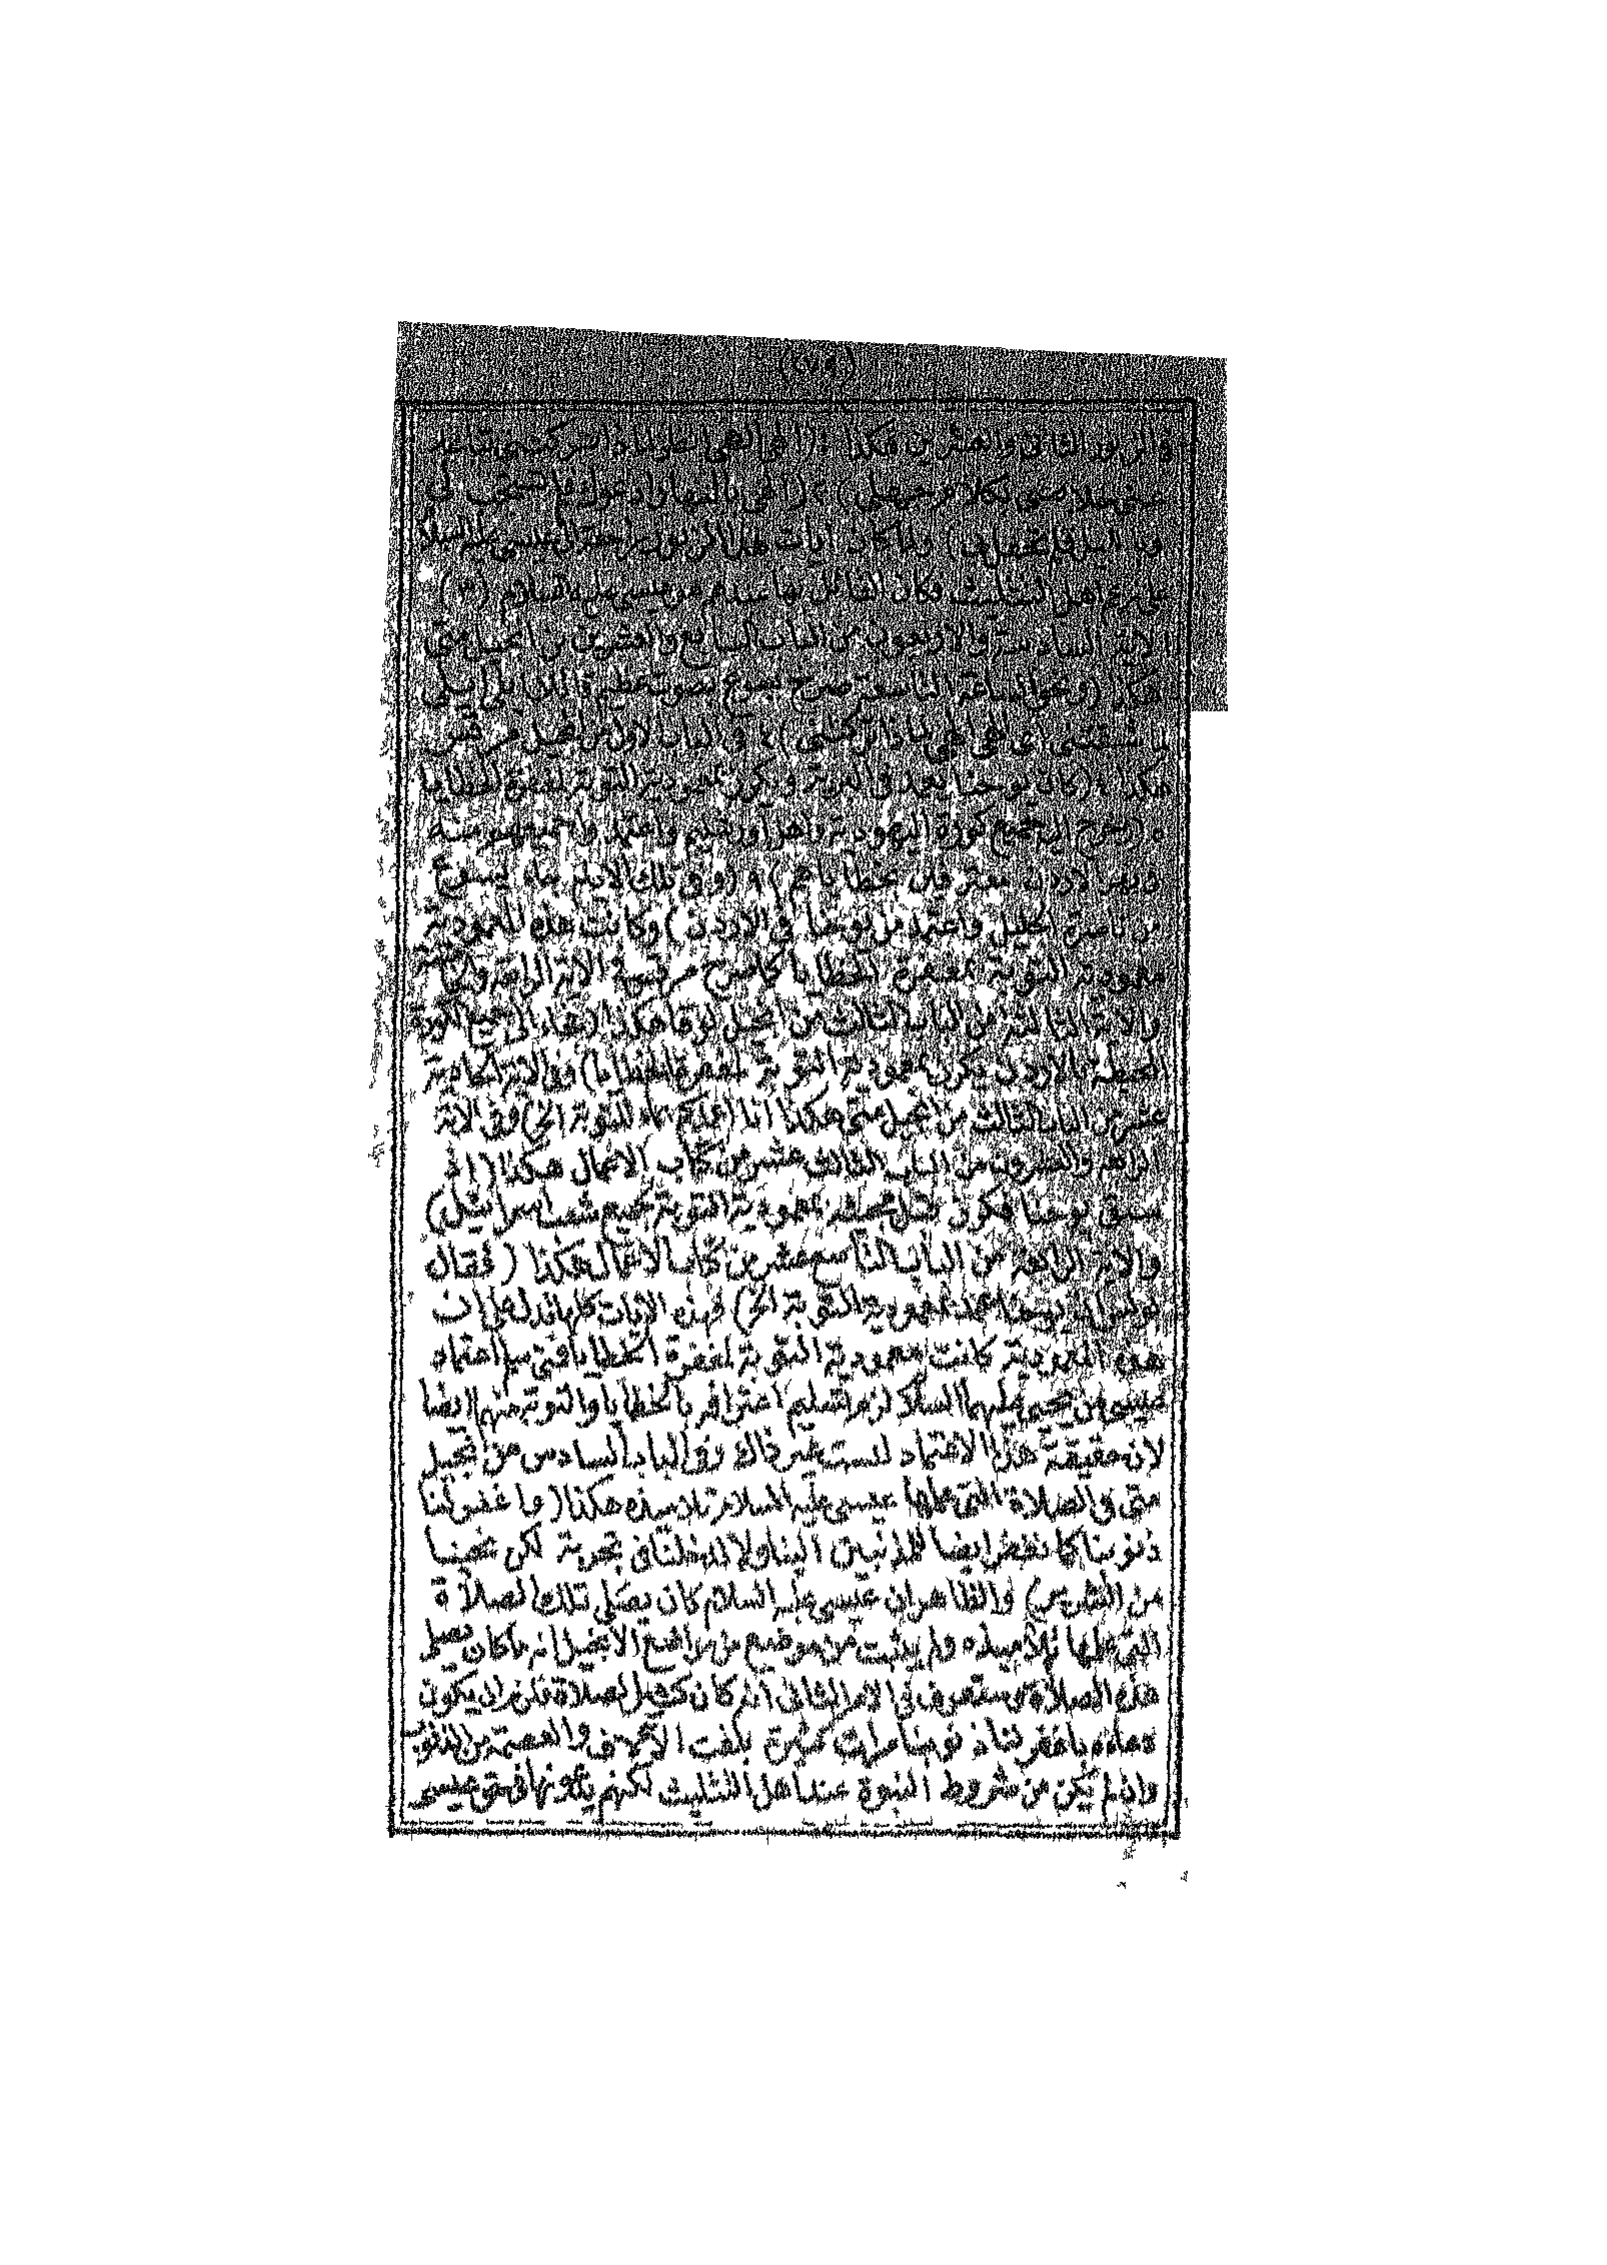 والزبور الثانى والعشرين هكذا ١ (الهى الهى انظر لماذا تركتنى تباعد
عنى خلاصى بكلام جهلى) ٢ (الهى بالنهار ادعوك فلم تستجب لى
وبالليل فلم تحفل بى) ولما كان ايات هذا الزبور راجعة الى عيسى عليه السلام
على زعم اهل التثليث فكان القائل بها عندهم هو عيسى عليه السلام (٣)
الاية السادسة والاربعون من الباب السابع والعشرين من انجيل متى
هكذا (ونحو الساعة التاسعة صرخ يسوع بصوت عظيم قائلا ايلى ايلى
لما شبقتنى اى الهى الهى لماذا تركتنى) ٤ فى الباب الاول من انجيل مرقس
هكذا ٤ (كان يوحنا يعمد فى البرية ويكرز بمعمودية التوبة لمغفرة الخطايا
٥ (وخرج اليه جميع كورة اليهودية واهل اورشليم واعتمد واجميعهم منه
فى نهر الاردن معترفين بخطاياهم) ٩ (وفى تلك الايام جاء يسوع
من ناصرة الجليل واعتمد من يوحنا فى الاردن) وكانت هذه المعمودية
معمودية التوبة بمغفرة الخطايا كما صرح مرقس فى الاية الرابعة والخامسة
والاية الثالثة من الباب الثالث من انجيل لوقا هكذا (فجاء الى جميع الكورة
المحيطة بالاردن يكرز بمعمودية التوبة لمغفرة الخطايا) وفى الاية الحادية
عشر من الباب الثالث من انجيل متى هكذا انا (اعمدكم بماء للتوبة الخ) وفى الاية
الرابعة والعشرون من الباب الثالث عشر من كتاب الاعمال هكذا (اذ
سبق يوحنا فكرز قبل مجيئه بمعمودية التوبة لجميع شعب اسرائيل)
والاية الرابعة من الباب التاسع عشر من كتاب الاعمال هكذا (فقال
بولس ان يوحنا عمد بمعمودية التوبة الخ) فهذه الايات كلها تدل على ان
هذه المعمودية كانت معمودية التوبة لمغفرة الخطايا فمتى سلم اعتماد
عيسى من يحيى عليهما السلام لزم تسليم اعترافه بالخطايا والتوبة منها ايضا
لان حقيقة هذا الاعتماد ليست غير ذلك وفى الباب السادس من انجيل
متى والصلاة التى علمها عيسى عليه السلام تلاميذه هكذا (واغفر لنا
ذنوبنا كما نغفر ايضا للمذنبين الينا ولا تدخلنا فى تجربة لكن نجنا
من الشرير) والظاهر ان عيسى عليه السلام كان يصلى تلك الصلاة
التى علمها تلاميذه ولم يثبت من موضع من مواضع الانجيل انه ما كان يصلى
هذه الصلاة وستعرف فى الامر الثانى انه كان كثير الصلاة فلزم ان يكون
دعاءه باغفر لنا ذنوبنا مرات كثيرة بلغت الالوف والعصمة من الذنوب
وان لم تكن من شروط النبوة عند اهل التثليث لكنهم يدعونها فى حق عيسى